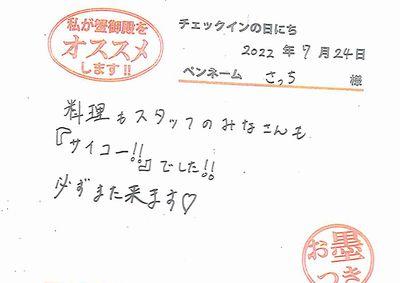 私が蟹御殿を
オススメ
します!!
チェックインの日にち
2022年7月24日
ペンネーム さっち 様
料理もスタッフのみなさんも
『サイコー!!』でした!!
必ずまた来ます♡
お墨
つき